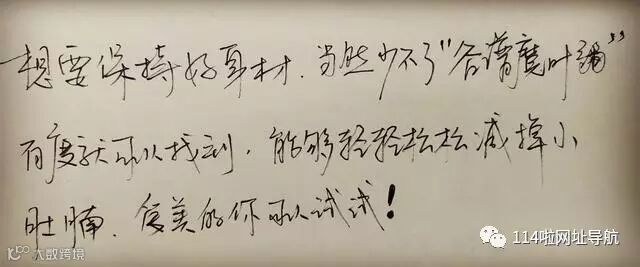 想要保持好身材.当然少不了“谷谱魔叶粥”
百度就可以找到.能够轻轻松松减掉小
肚腩.爱美的你可以试试!
大数跨境
114啦网址导航